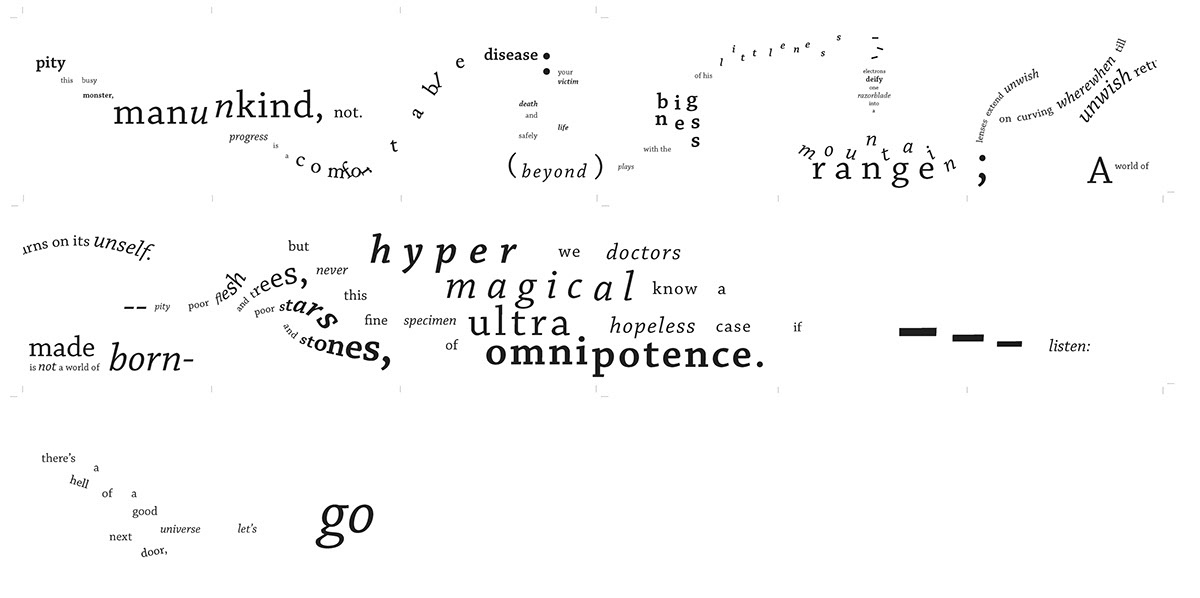 pity
this busy
monster,
manunkind, not.
progress
is
a
comfort
able
disease:
your
victim
(death
and
safely
life
beyond)
plays
with the
bigness
of his
littleness
--
electrons
deify
one
razorblade
into
a
mountain
range;
lenses extend unwish
on curving wherewhen till
unwish retu
urns on its unself.
A world of
made
is not a world of born-
-- pity poor flesh
and trees,
poor stars
and stones,
but
never
this
fine specimen
of
hyper
magical
ultra
omnipotence.
we doctors
know a
hopeless case if
--- listen:
there's
a
hell
of a
good
universe
next
door,
let's
go